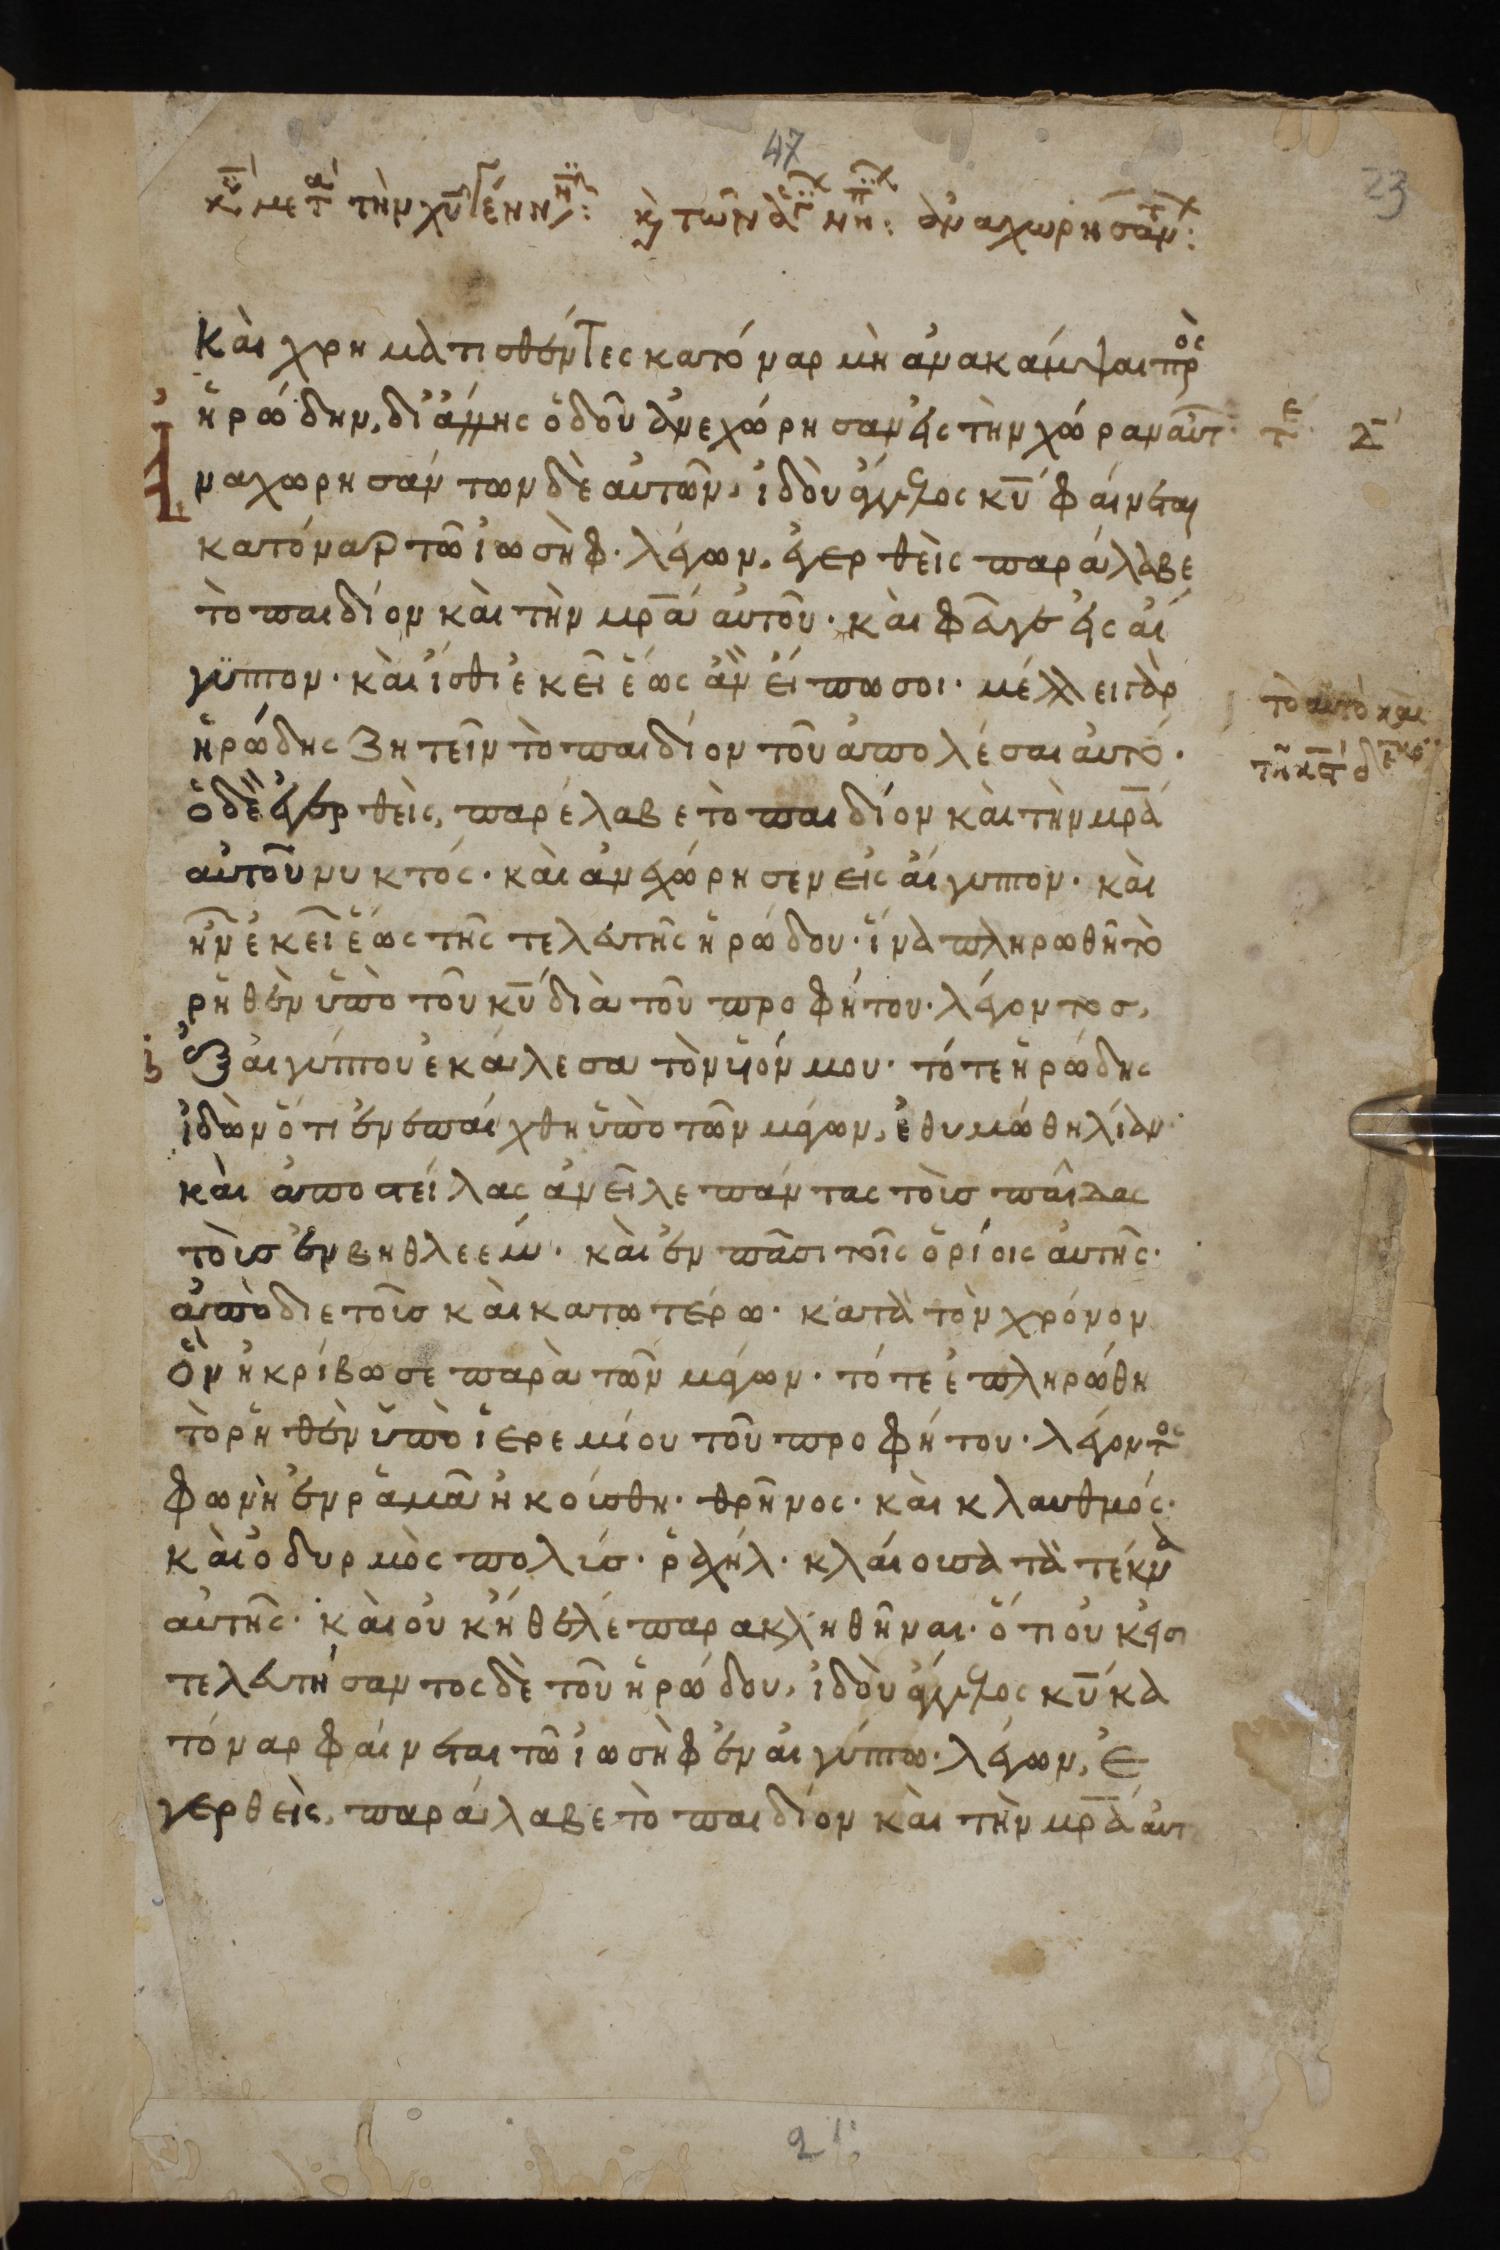 47
23
τὴν χυ γένν
ἀναχωρησαν
Καὶ χρηματισθέντες κατόναρ μὴ ἀνακάμψαι πρὸς
ἡρώδην, δι ἄλλης ὁδοῦ ἀνεχώρησαν εἰς τὴν χώραν αὐτ
Ἀ
ναχωρησάντων δὲ αὐτῶν, ἰδοὺ ἄγγελος κυ φαίνεται
κατόναρ τῶ ἰωσὴφ· λέγων, ἐγερθεὶς παράλαβε
τὸ παιδίον καὶ τὴν μρα αὐτοῦ· καὶ φεῦγε εἰς αἴ
γυπτον· καὶ ἴσθι ἐκεῖ ἕως ἂν εἴπω σοι· μέλλει γὰρ
ἡρώδης ζητεῖν τὸ παιδίον τοῦ ἀπολέσαι αὐτό·
τὸ αὐτὸ καὶ
ὁ δὲ ἐγερθεὶς, παρέλαβε τὸ παιδίον καὶ τὴν μρα
αὐτοῦ νυκτός· καὶ ἀνεχώρησεν εἰς αἴγυπτον· καὶ
ἦν ἐκεῖ ἕως τῆς τελευτῆς ἡρώδου· ἵνα πληρωθῆ τὸ
ρηθὲν ὑπὸ τοῦ κυ διὰ τοῦ προφήτου· λέγοντος,
ἐξ αἰγύπτου ἐκάλεσα τὸν υἱόν μου· τότε ἡρώδης
ἰδὼν ὅτι ἐνεπαίχθη ὑπὸ τῶν μάγων, ἐθυμώθη λίαν·
καὶ ἀποστείλας ἀνεῖλε πάντας τοὺς παῖδας
τοὺς ἐν βηθλεέμ· καὶ ἐν πᾶσι τοῖς ὁρίοις αὐτῆς·
ἀπὸ διετοῦς καὶ κατωτέρω· κατὰ τὸν χρόνον
ὃν ἠκρίβωσε παρὰ τῶν μάγων· τότε ἐπληρώθη
τὸ ρηθὲν ὑπὸ ἱερεμίου τοῦ προφήτου· λέγοντος
φωνὴ ἐν ραμᾶ ἠκούσθη· θρῆνος· καὶ κλαυθμός·
καὶ ὀδυρμὸς πολύς· ραχήλ· κλαίουσα τὰ τέκνα
αὐτῆς· καὶ οὐκ ἤθελε παρακληθῆναι· ὅτι οὐκ εἰσι
τελευτήσαντος δὲ τοῦ ἡρώδου, ἰδοὺ ἄγγελος κυ κα
τόναρ φαίνεται τῶ ἰωσὴφ ἐν αἰγύπτω· λέγων, ἐ
γερθεὶς, παράλαβε τὸ παιδίον καὶ τὴν μρα αὐτ